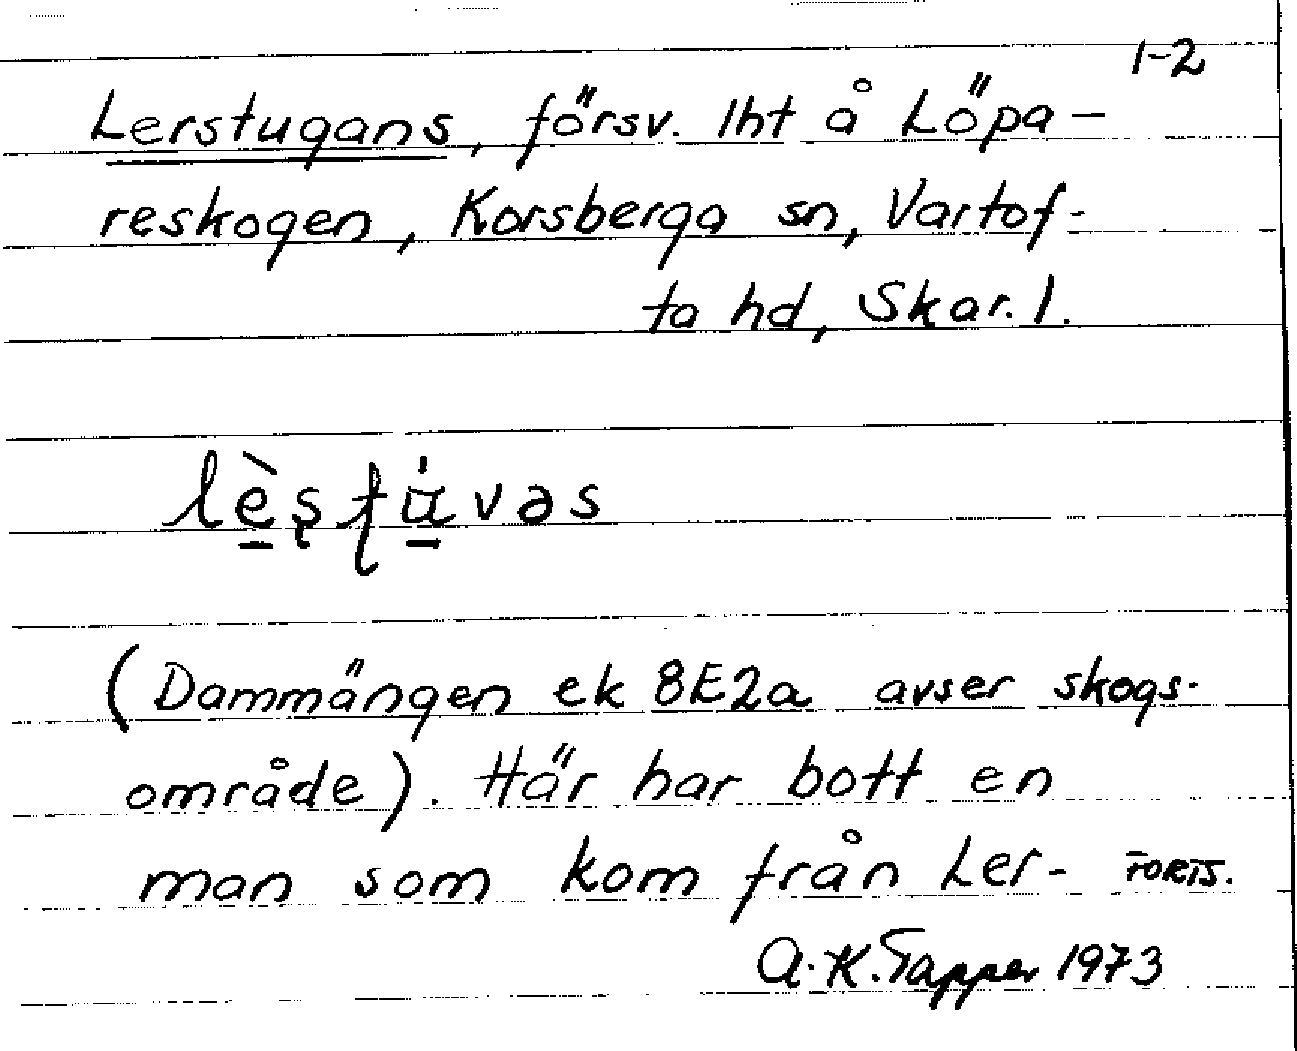 1-2
Lerstugans, försv. lht å Löpa-
reskogen, Korsberga sn, Vartof-
ta hd, Skar. l.
lèstu̇vəs
(Dammängen ek 8E2a avser skogs-
område). Här har bott en
man som kom från Ler- FORTS.
A.K. Tapper 1973